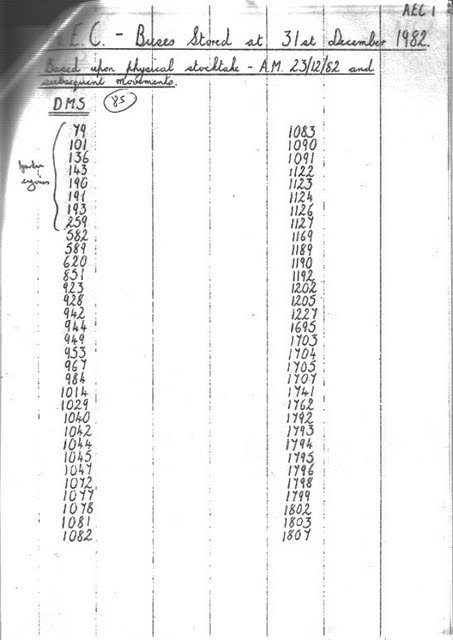 AEC 1
A.E.C. - Buses Stored at 31st December 1982.
Based upon physical stocktake - A.M. 23/12/82 and
subsequent movements.
DMS 85
79
101
136
143
190
191
193
259
engines
582
589
620
851
923
928
942
944
949
953
967
984
1014
1029
1040
1042
1044
1045
1047
1072
1077
1078
1081
1082
1083
1090
1091
1122
1123
1124
1126
1127
1169
1189
1190
1192
1202
1205
1227
1695
1703
1704
1705
1707
1741
1762
1792
1793
1794
1795
1796
1798
1799
1802
1803
1807